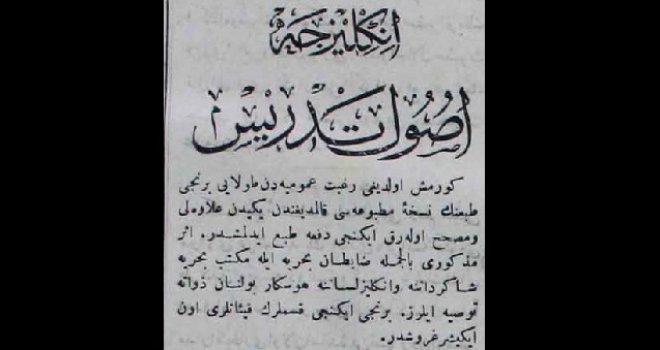 انكليزجه
اصول تدريس
كورمش اولديغى رغبت عموميه‌دن طولايى برنجى
طبعنك نسخهٔ مطبوعه‌سى قالمديغندن يكيدن علاوه‌لى
ومصحح اوله‌رق ايكنجى دفعه طبع ايدلمشدر. اثر
مذكورى بالجمله ضابطان بحريه ايله مكتب بحريه
شاكرداننه وانكليز لساننه هوسكار بولنان ذواته
توصيه ايلرز. برنجى ايكنجى قسملرك فيئاتلرى اون
ايكيشر غروشدر.